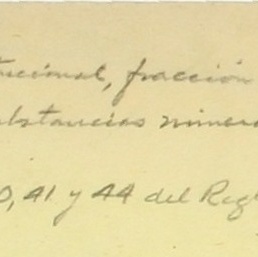 tucional, fracción
bstancias minera
0, 41 y 44 del Reg